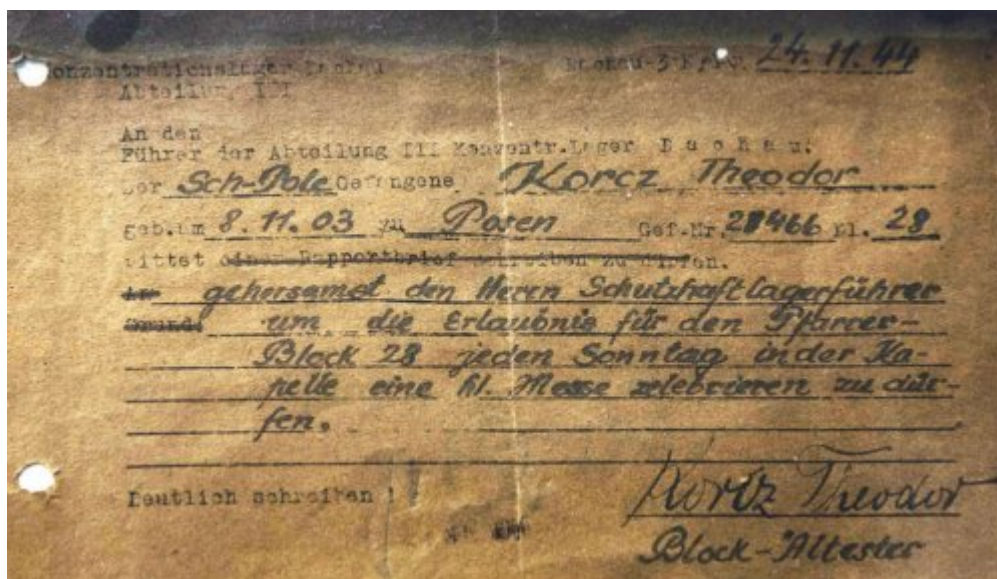 Konzentrationslager Dachau Dachau-3 K, den 24.11.44
Abteilung III
An den
Führer der Abteilung III Konzentr.Lager D a c h a u.
Der Sch-Pole Gefangene Korcz Theodor
geb.am 8.11.03 zu Posen Gef.Nr. 28466 Bl. 28
bittet einen Rapportbrief schreiben zu dürfen.
An gehorsamst den Herrn Schutzhaftlagerführer
Grund: um die Erlaubnis für den Pfarrer-
Block 28 jeden Sonntag in der Ka-
pelle eine hl. Messe zelebrieren zu dür-
fen.
Deutlich schreiben !
Korcz Theodor
Block-Ältester